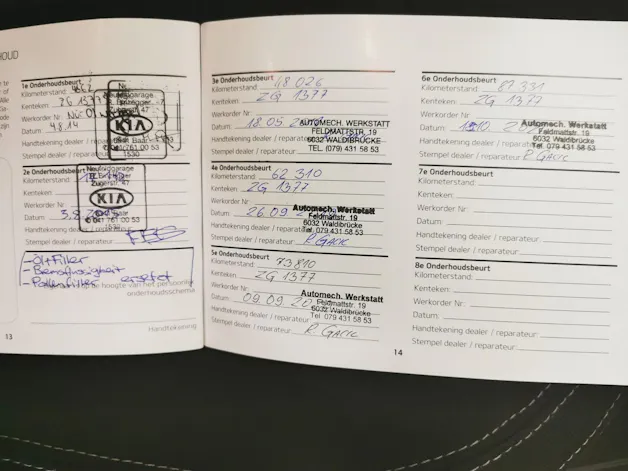 HOUD
1e Onderhoudsbeurt
Kilometerstand:
Kenteken: ZG 1377
Werkorder Nr:
Datum: 4.8.14
Handtekening dealer / reparateur
Stempel dealer / reparateur
Neufeldgarage
Zugerstr. 47
KIA
2e Onderhoudsbeurt
Kilometerstand:
Kenteken:
Werkorder Nr:
Datum
Handtekening dealer / reparateur
Stempel dealer / reparateur
Neufeldgarage
Zugerstr. 47
KIA
Baar
761 00 53
- Ölfilter
- Pollenfilter ersetzt
hoogte van het persoonlijk
onderhoudsschema
Handtekening
13
3e Onderhoudsbeurt
Kilometerstand: 48 026
Kenteken: ZG 1377
Werkorder Nr:
Datum: 18 05
Handtekening dealer / reparateur
Stempel dealer / reparateur:
AUTOMECH. WERKSTATT
FELDMATTSTR. 19
6032 WALDIBRÜCKE
TEL. (079) 431 58 53
4e Onderhoudsbeurt
Kilometerstand: 62 310
Kenteken: ZG 1377
Werkorder Nr:
Datum: 26.09
Handtekening dealer / reparateur
Stempel dealer / reparateur:
Automech. Werkstatt
Feldmattstr. 19
6032 Waldibrücke
Tel. 079 431 58 53
5e Onderhoudsbeurt
Kilometerstand: 73810
Kenteken: ZG 1377
Werkorder Nr:
Datum: 09.09.20
Handtekening dealer / reparateur
Stempel dealer / reparateur:
Automech. Werkstatt
Feldmattstr. 19
6032 Waldibrücke
Tel. 079 431 58 53
14
6e Onderhoudsbeurt
Kilometerstand: 81 331
Kenteken: ZG 1377
Werkorder Nr:
Datum:
Handtekening dealer / reparateur
Stempel dealer / reparateur:
Automech. Werkstatt
Feldmattstr. 19
6032 Waldibrücke
Tel. 079 431 58 53
7e Onderhoudsbeurt
Kilometerstand:
Kenteken:
Werkorder Nr:
Datum:
Handtekening dealer / reparateur:
Stempel dealer / reparateur:
8e Onderhoudsbeurt
Kilometerstand:
Kenteken:
Werkorder Nr:
Datum:
Handtekening dealer / reparateur:
Stempel dealer / reparateur: